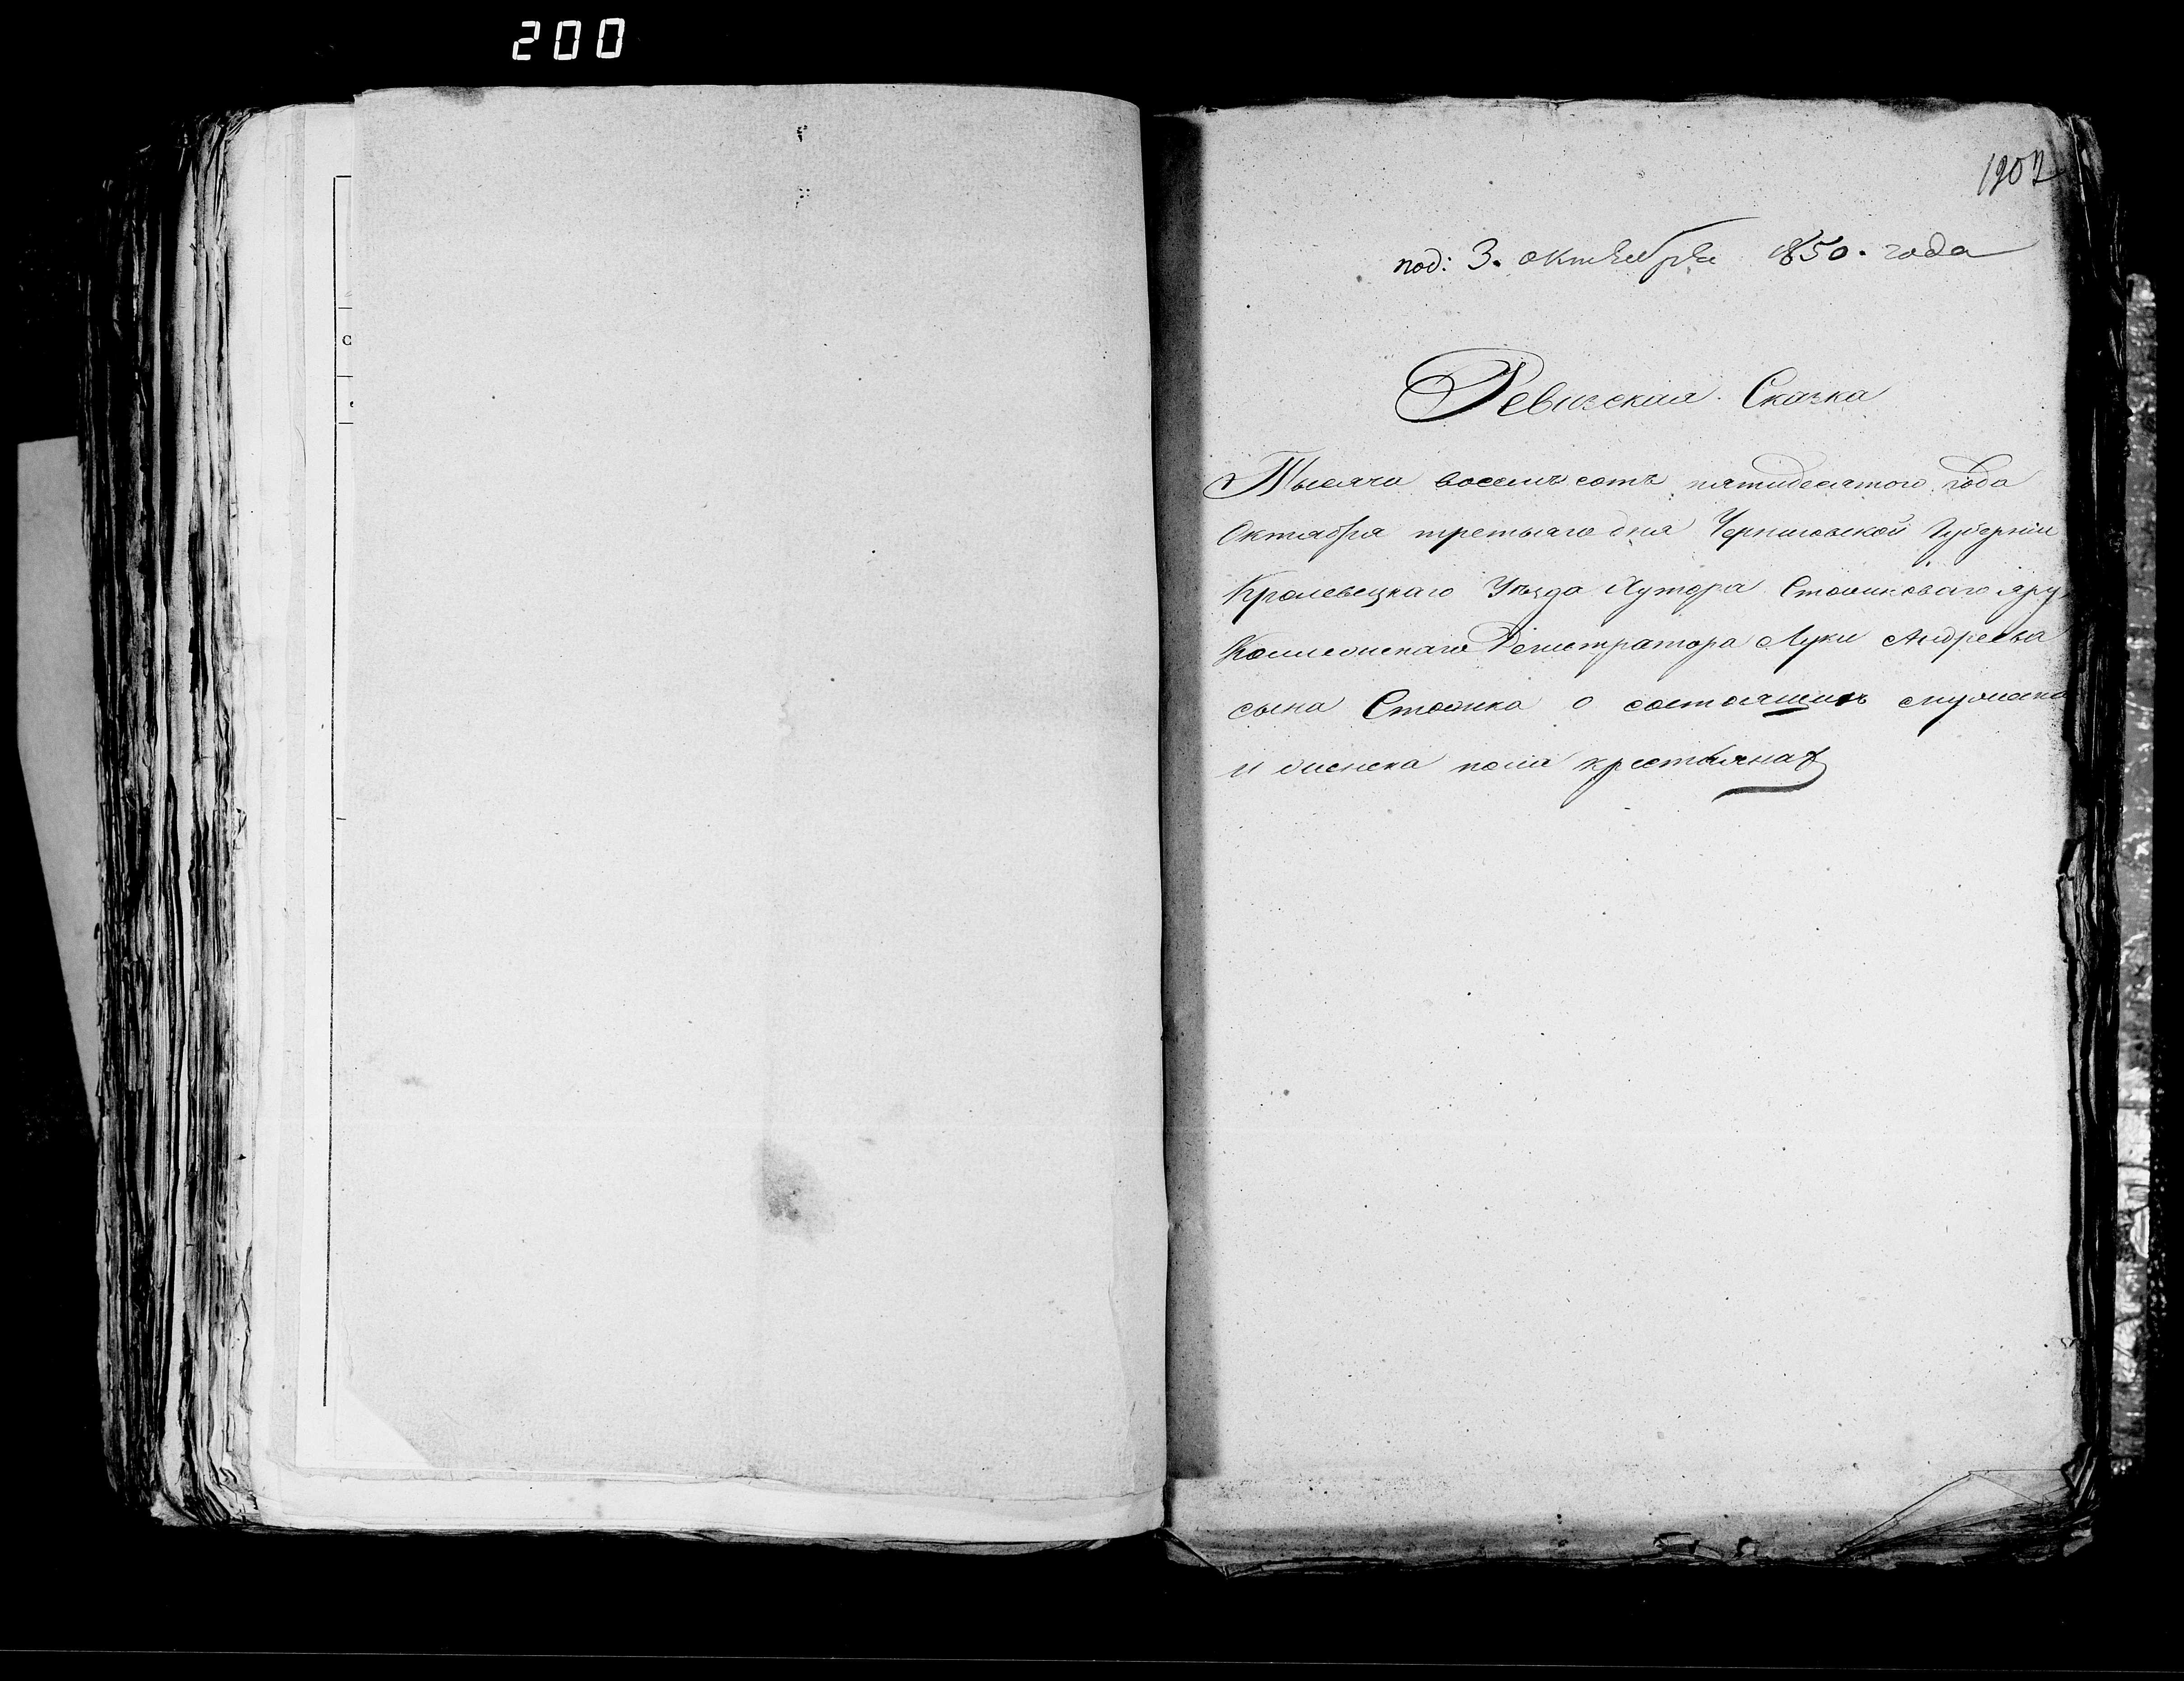 200
1902
под: 3. октября 1850. года
Ревизская Сказка
Тысяча восемъ сотъ пятидесятого Года
Октября третьяго дня Черниговской Губерніи
Кролевецкаго Уѣзда Хутора Стояиковаго яру
Коллежскаго Регистратора Луки Андреева
сына Стоянка о состоящихъ мужеска
и женска пола крестьянах